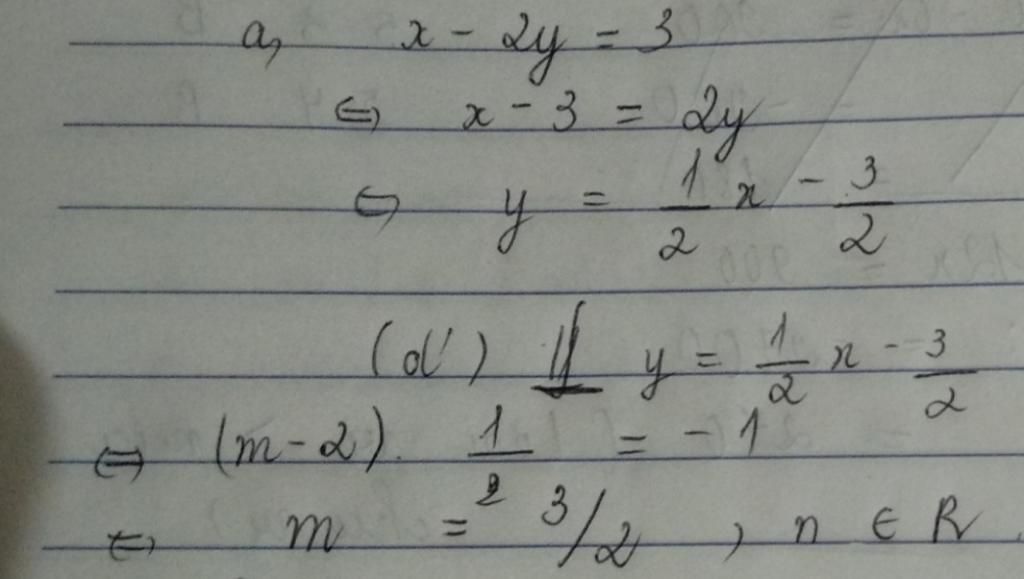 a, x - 2y = 3
⇔ x - 3 = 2y
⇔ y = 1/2 x - 3/2
(d') ⊥ y = 1/2 x - 3/2
⇔ (m - 2). 1/2 = - 1
⇔ m = 3/2 , n ∈ R